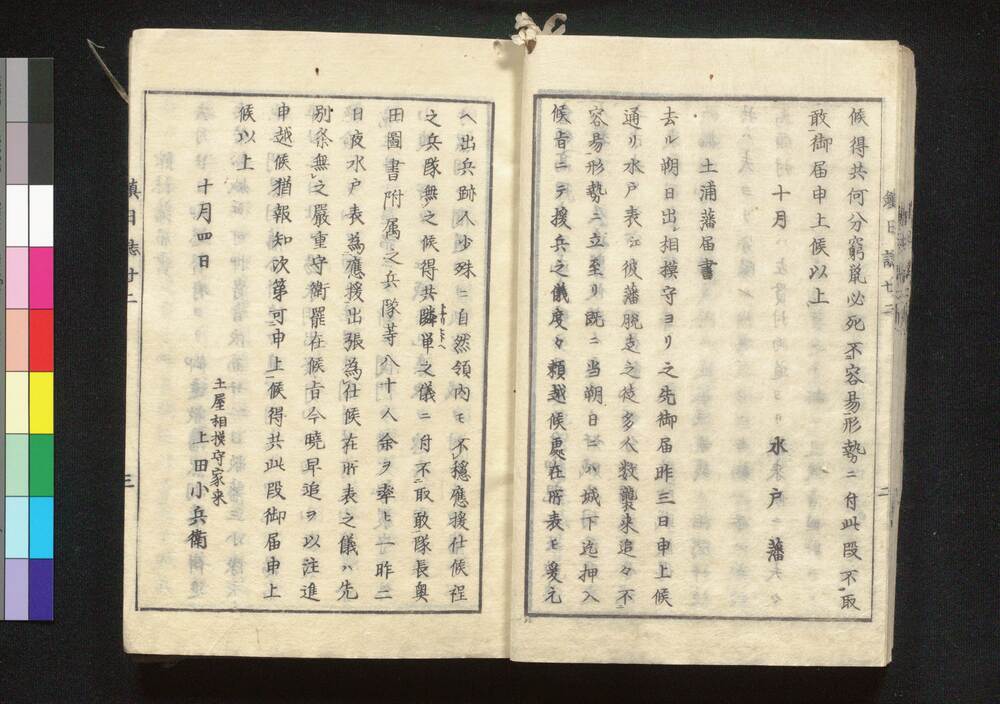 候得共何分窮鼠必死不容易形勢ニ付此段不取
敢御届申上候以上
十月
水戸藩
土浦藩届書
去ル朔日出相摸守ヨリ之先御届昨三日申上候
通リ水戸表江彼藩脱走之徒多人数襲来追々不
容易形勢ニ立至リ既ニ当朔日ニハ城下迄押入
候旨ニテ援兵之儀度々頼越候處在所表モ爰元
ヘ出兵跡人少殊ニ自然領内モ不穏應援仕候程
之兵隊無之候得共隣単之儀ニ付不取敢隊長奥
田圖書附属之兵隊等八十人余ヲ率ヒ一昨二
日夜水戸表為應援出張為仕候在所表之儀ハ先
別条無之嚴重守衛罷在候旨今曉早追ヲ以注進
申越候猶報知次第可申上候得共此段御届申上
候以上
十月四日
土屋相摸守家来
上田小兵衛
鎮日誌廿二
三